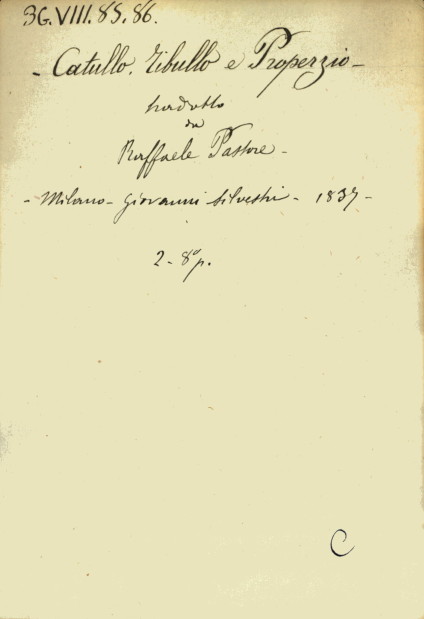 3G.VIII.85.86.
- Catullo. Tibullo e Properzio -
tradotto
da
Raffaele Pastore -
- Milano - Giovanni Silvestri - 1837 -
2 - 8º p.
C